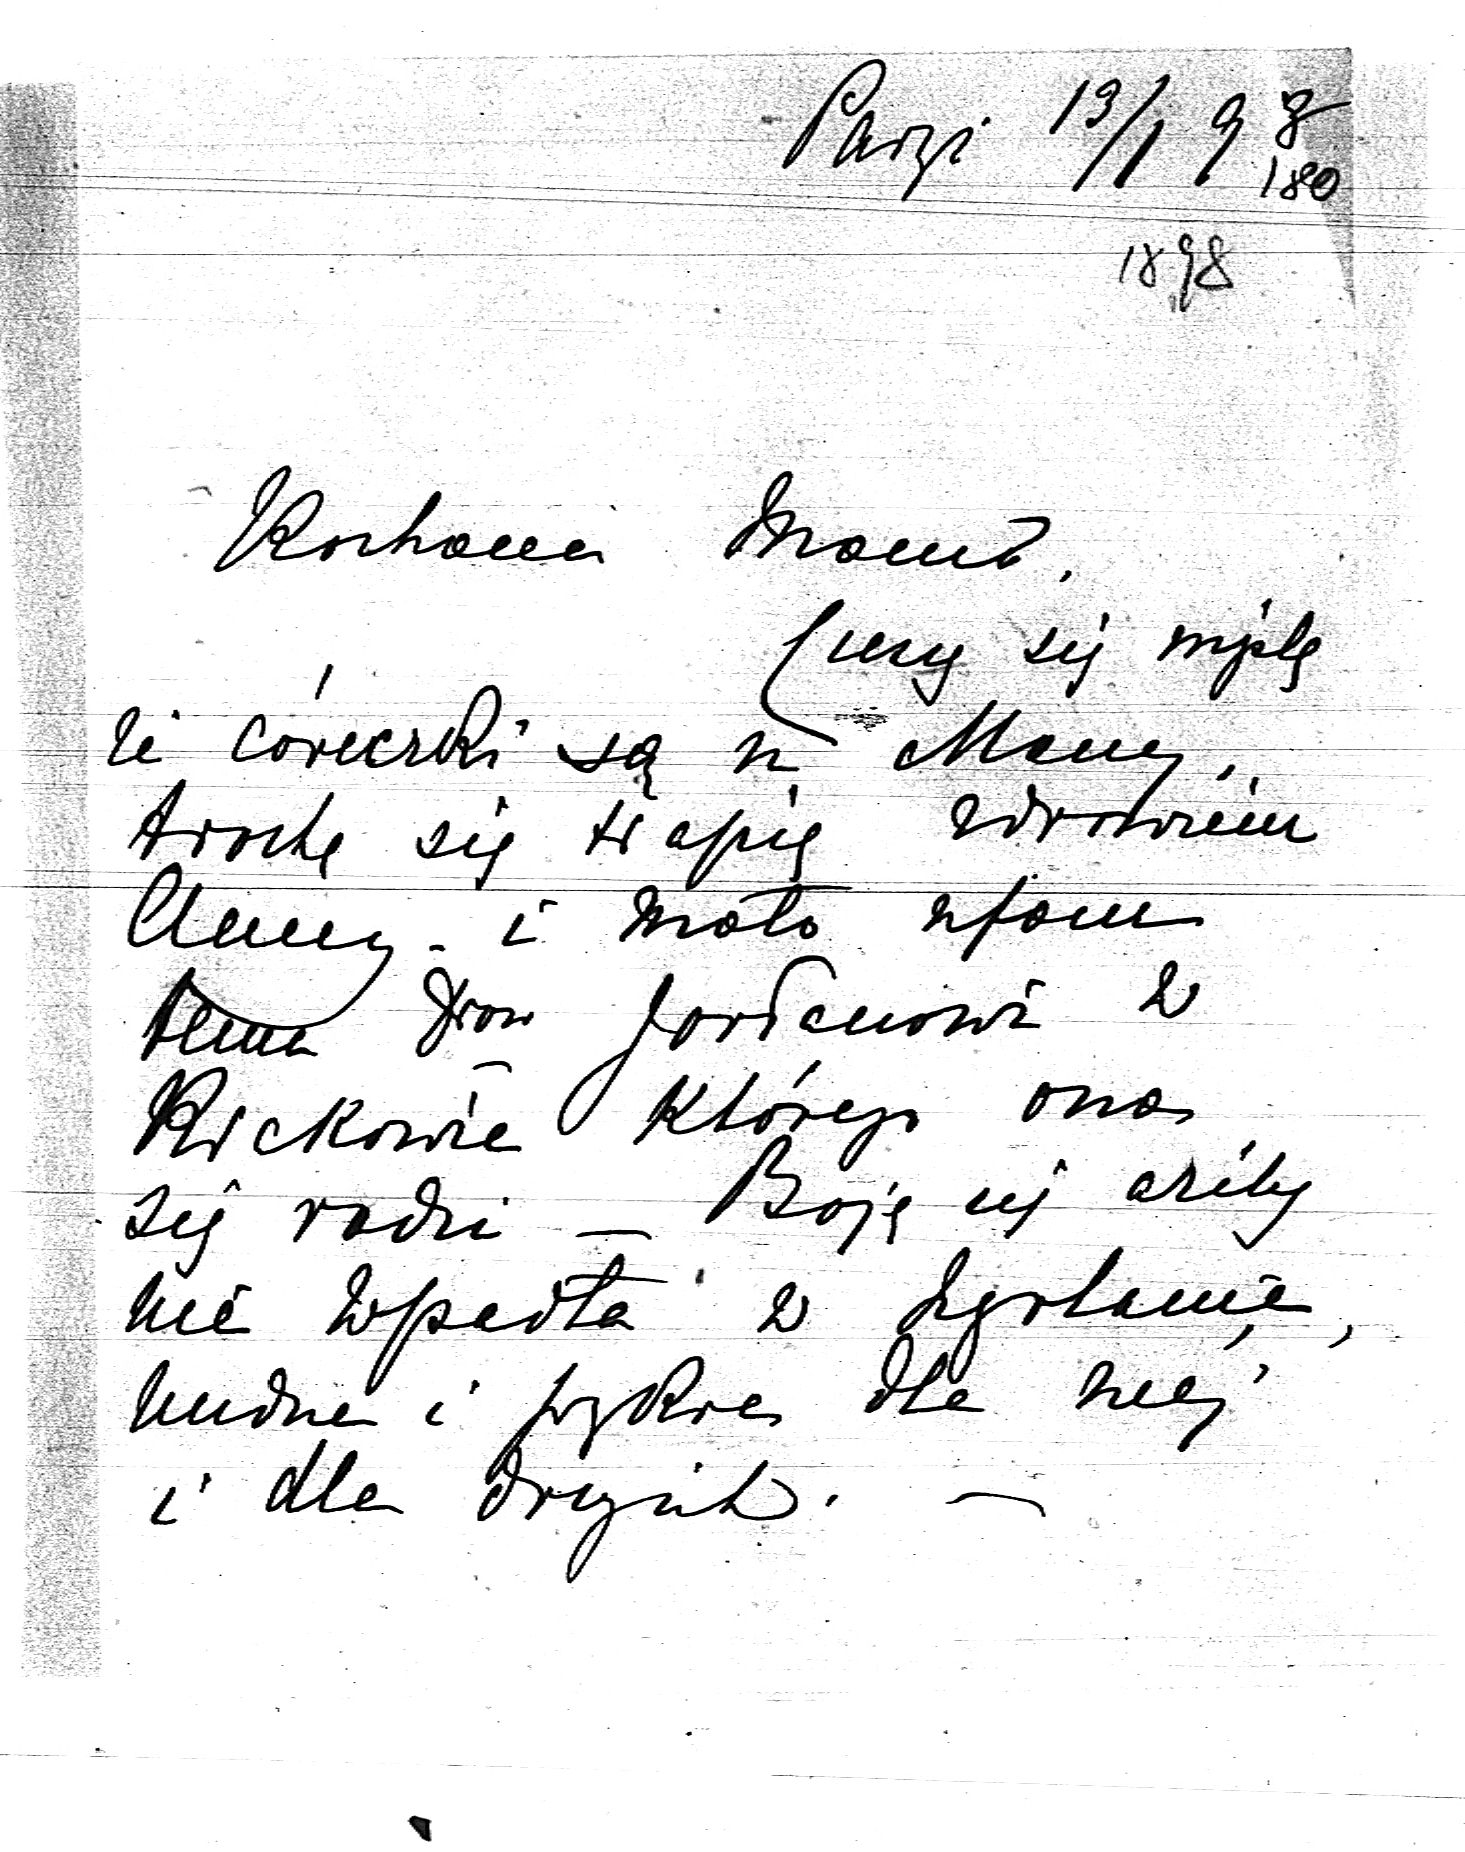 Paryż 19/1 98
180
1898
Kochana Mamo,
Cieszę się myślą
że córeczki są u Mamy,
trochę się trapię zdrowiem
Anny - i mało ufam
temu Drow Jordanowi w
Krakowie którego ona
się radzi — Boję się ażeby
nie wpadła w
nudne i przykre dla niej
i dla drugich. —